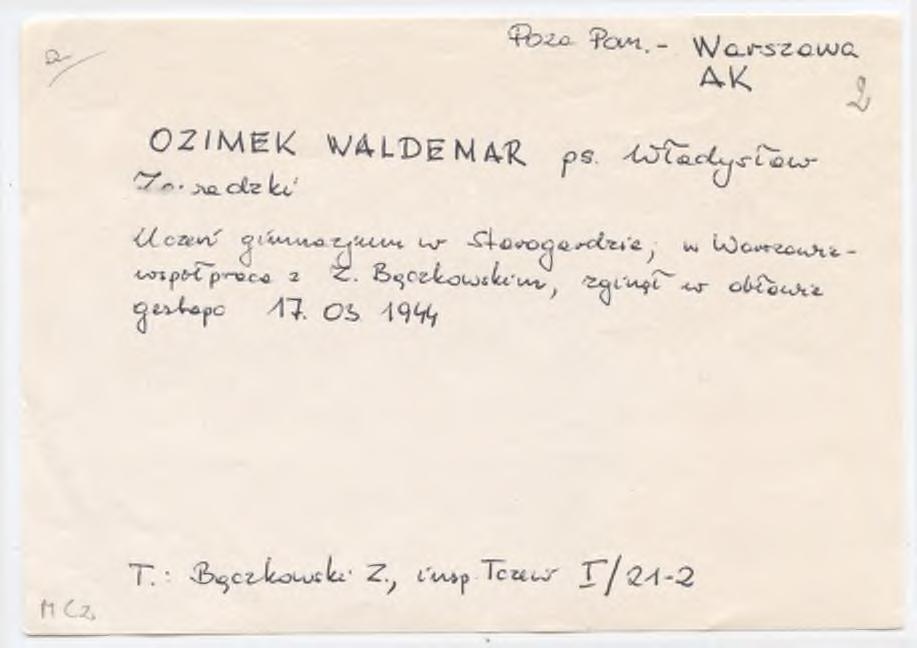 Poza Pom. - Warszawa
AK
2
OZIMEK WALDEMAR ps. Władysław
Uczeń gimnazjum w Starogardzie, w Warszawie -
współpraca z Z. Bączkowskim, zginął w obławie
gestapo 17. 03 1944
T.: Bączkowski Z., insp. Tczew I/21-2